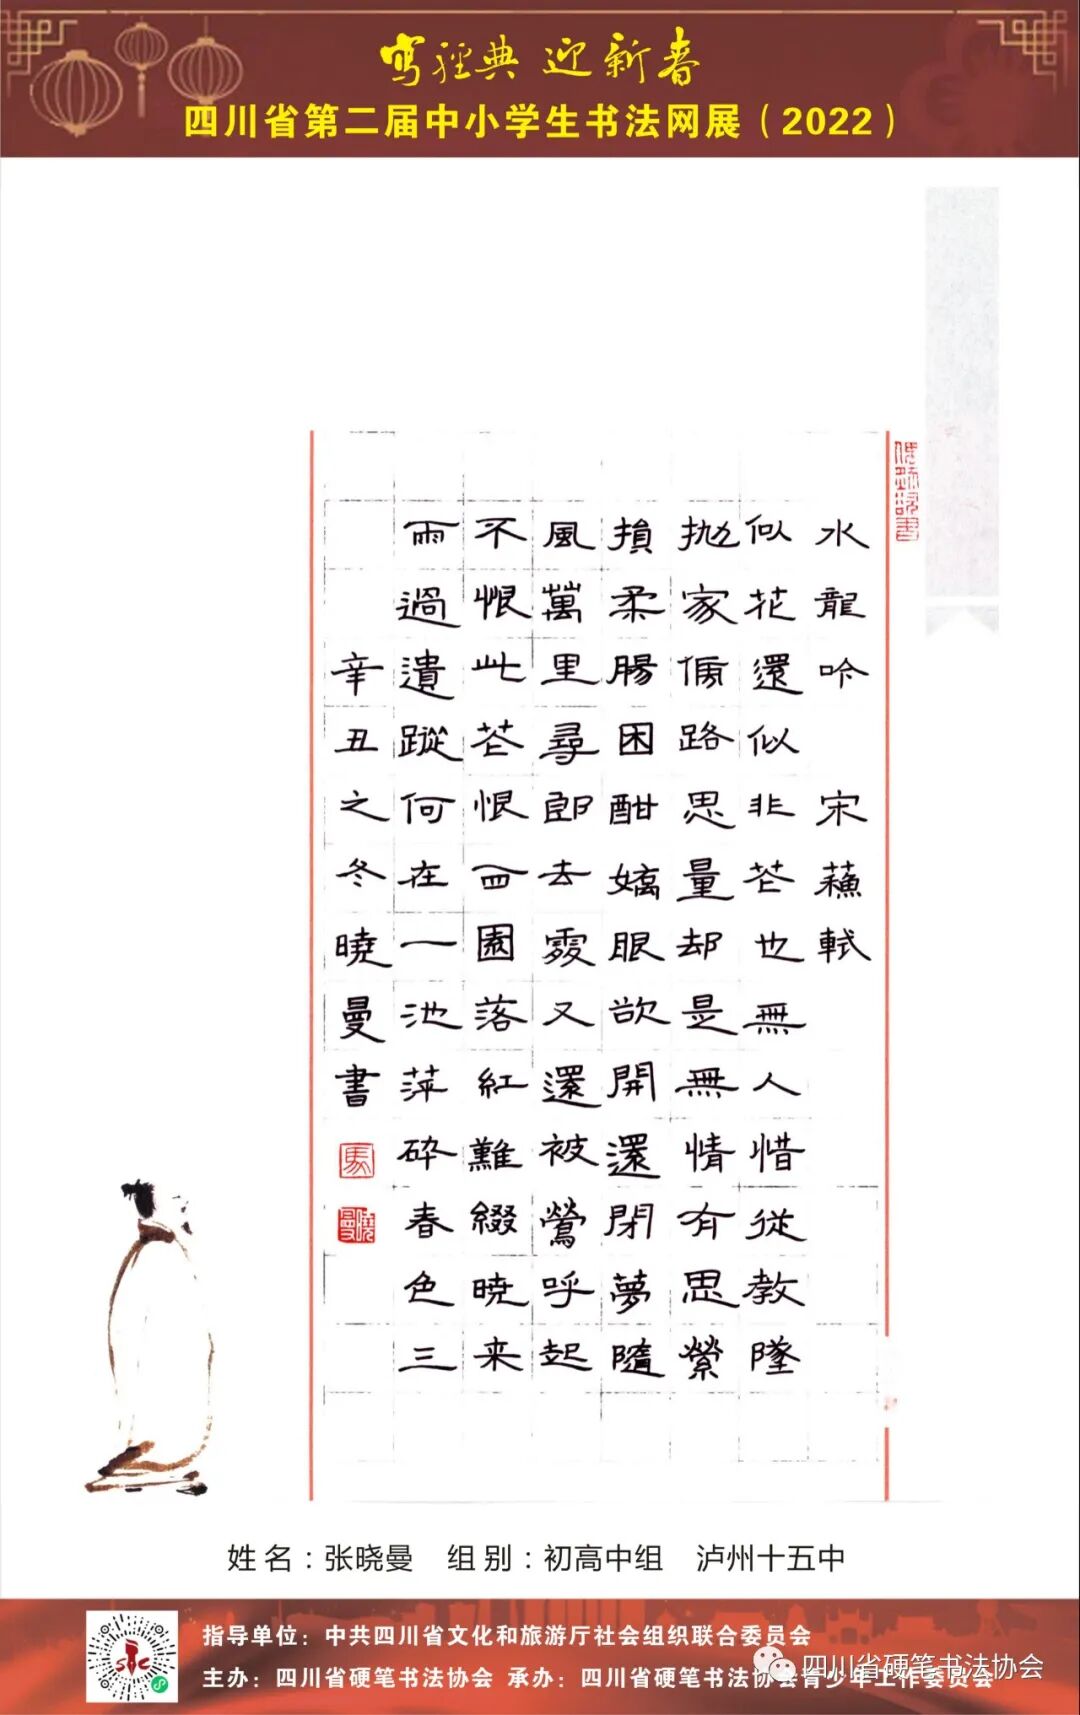 寫經典 迎新春
四川省第二届中小学生书法网展（2022）
水龍吟 宋蘇軾
似花還似非花也無人惜從教墜
抛家傍路思量却是無情有思縈
損柔腸困酣嬌眼欲開還閉夢隨
風萬里尋郎去處又還被鶯呼起
不恨此花恨西園落紅難綴曉来
雨過遺蹤何在一池萍碎春色三
辛丑之冬曉曼書
曉曼
姓名：张晓曼 组别：初高中组 泸州十五中
指导单位：中共四川省文化和旅游厅社会组织联合委员会
主办：四川省硬笔书法协会 承办：四川省硬笔书法协会青少年工作委员会
四川省硬笔书法协会